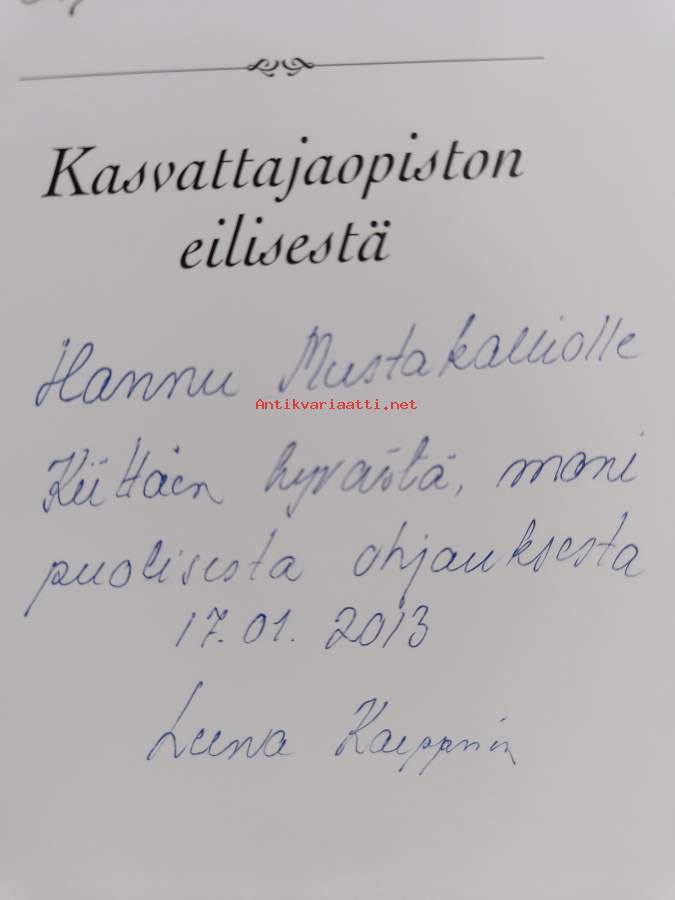 Kasvattajaopiston
eilisestä
Hannu Mustakalliolle
Antikvariaatti.net
Kiittäen hyvästä, moni
puolisesta ohjauksesta
17.01. 2013
Leena